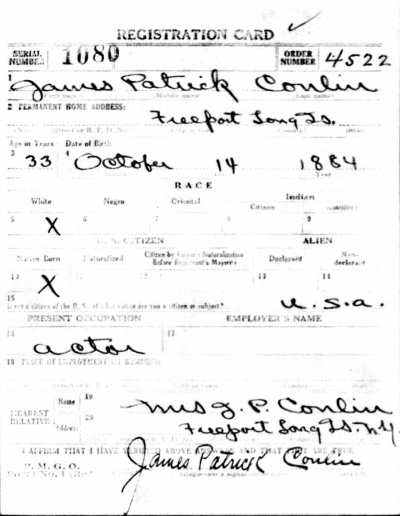 REGISTRATION CARD
SERIAL NUMBER 1080 ORDER NUMBER 4522
1 James Patrick Conlin
2 PERMANENT HOME ADDRESS:
Freeport Long Is.
Age in Years Date of Birth
3 33 4 October 14 1884
Year
RACE
White Negro Oriental Indian
Citizen
5 X 6 7 8 9
U. S. CITIZEN ALIEN
Native Born Naturalized Citizen by Father's Naturalization Before Registrant's Majority Declarant Non-declarant
10 X 11 12 13 14
15
If not a citizen of the U. S. of what nation are you a citizen or subject?
U.S.A.
PRESENT OCCUPATION EMPLOYER'S NAME
16 actor 17
18 PLACE OF EMPLOYMENT OR BUSINESS
NEAREST RELATIVE Name 19 Mrs J. P. Conlin
Address 20 Freeport Long Is. N.Y.
I AFFIRM THAT I HAVE VERIFIED ABOVE ANSWERS AND THAT THEY ARE TRUE
P. M. G. O.
James Patrick Conlin